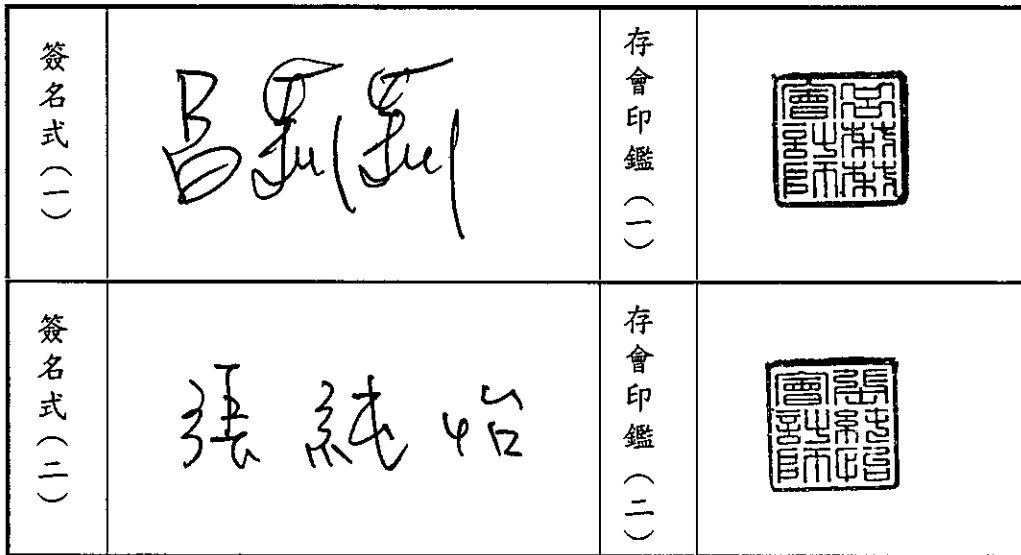 簽名式（一）
呂莉莉
存會印鑑（一）
呂莉莉
會計師
簽名式（二）
張純怡
存會印鑑（二）
張純怡
會計師